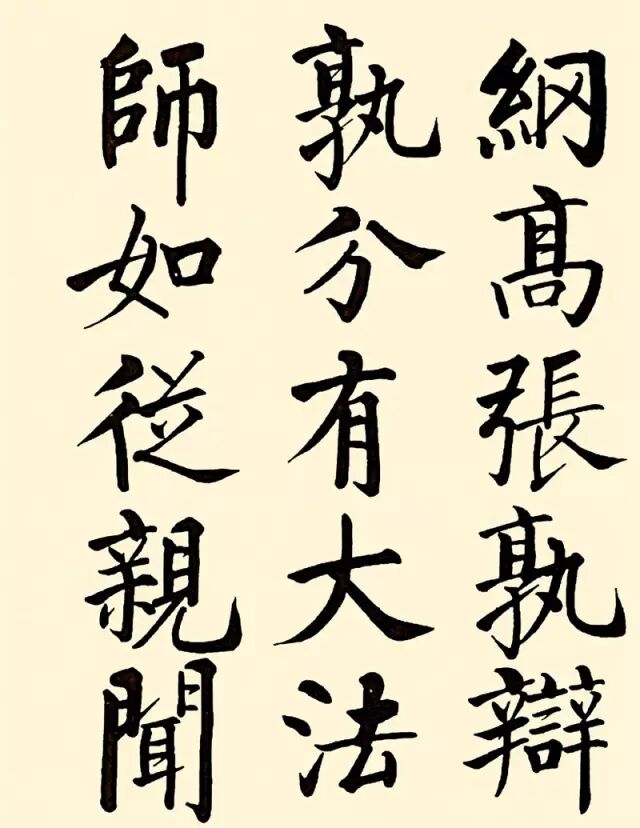 綱髙張孰辯
孰分有大法
師如從親聞